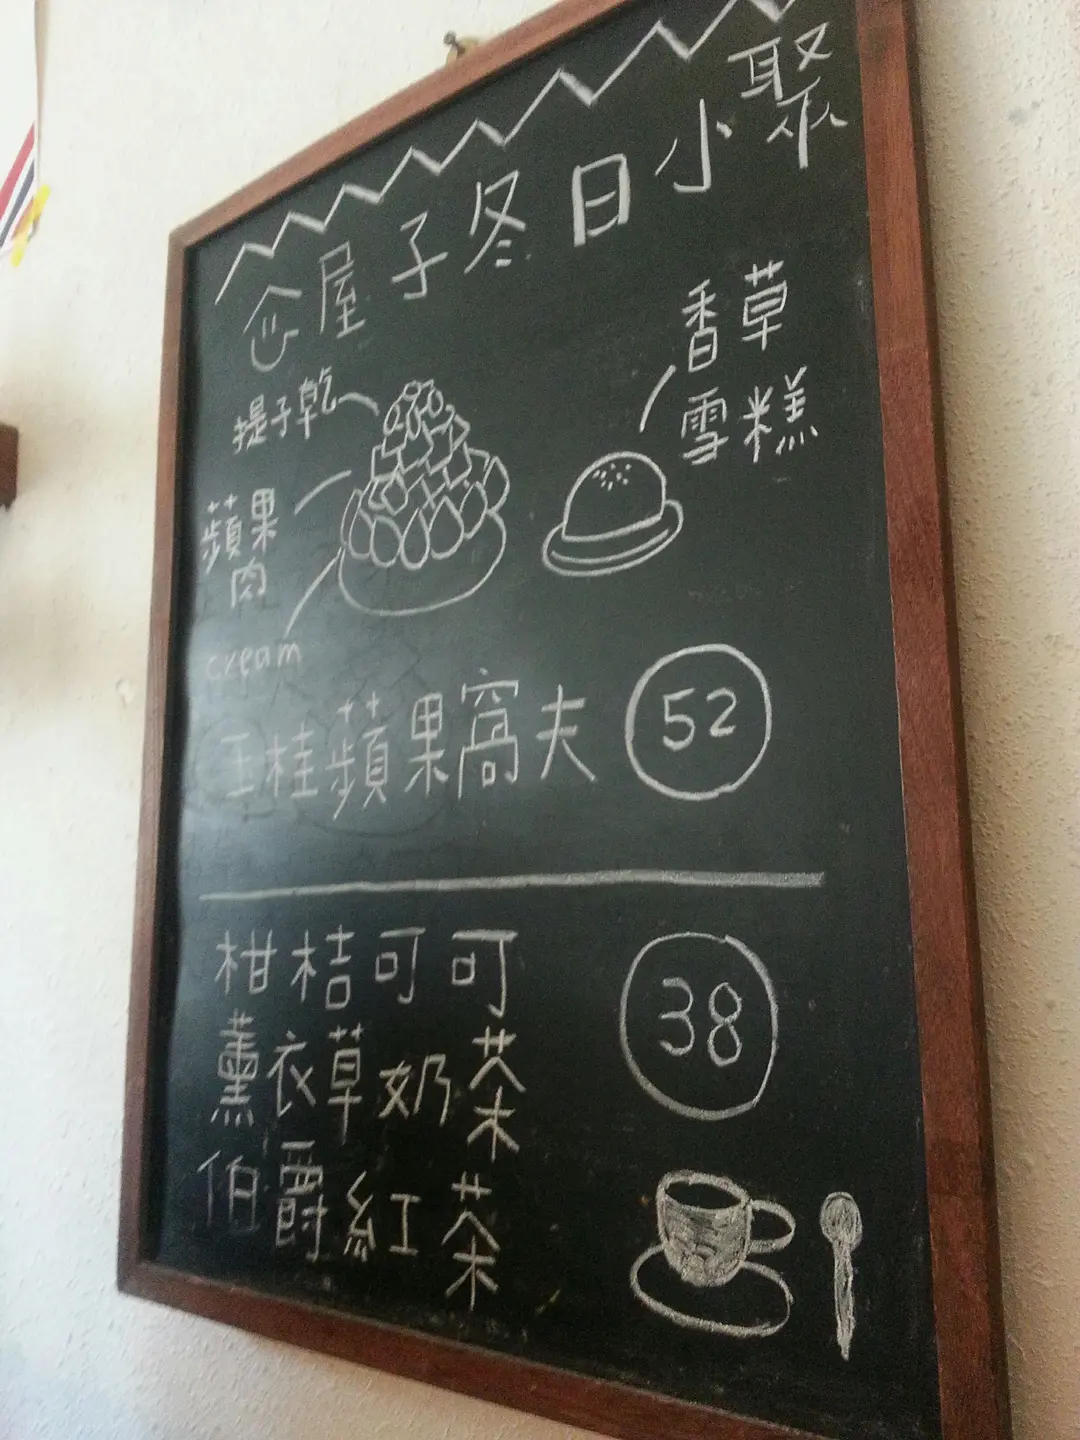 屋子冬日小聚
提子乾
香草
雪糕
蘋果
肉
cream
玉桂蘋果窩夫
52
柑桔可可
38
薰衣草奶茶
伯爵紅茶